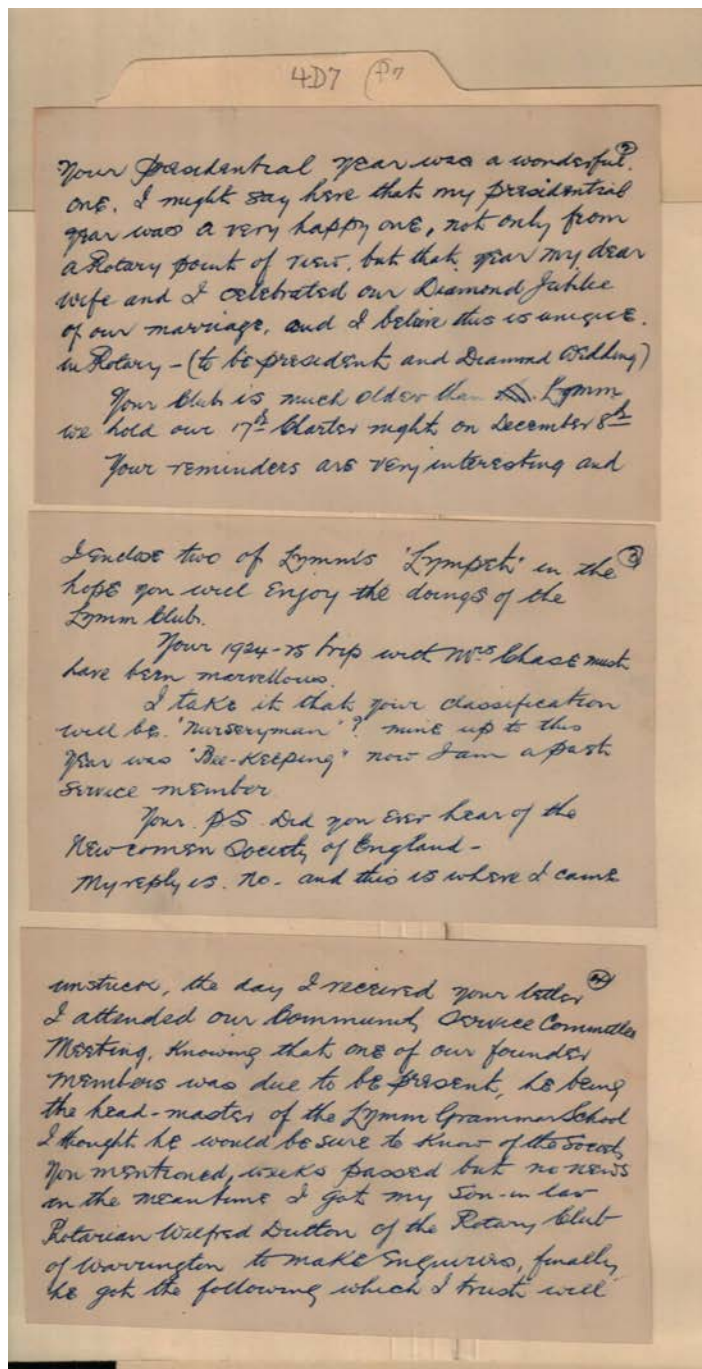 4D7 P7
Your presidential year was a wonderful. 2
one. I might say here that my presidential
year was a very happy one, not only from
a Rotary point of view, but that year my dear
wife and I celebrated our Diamond Jubilee
of our marriage, and I believe this is unique.
in Rotary - (to be president and Diamond Wedding)
Your Club is much older than Lymm
we hold our 17th Charter night on December 8th
Your reminders are very interesting and
I enclose two of Lymm's 'Lympet' in the 3
hope you will enjoy the doings of the
Lymm Club.
Your 1924-25 trip with Mrs Chase must
have been marvellous.
I take it that your classification
will be. "Nurseryman"? mine up to this
year was "Bee-Keeping" now I am a past
service member
Your. PS. Did you ever hear of the
Newcomen Society of England -
My reply is. No - and this is where I came
unstuck, the day I received your letter 4
I attended our Community Service Committee
Meeting, Knowing that one of our founder
members was due to be present, he being
the head-master of the Lymm Grammar School
I thought he would be sure to know of the Society
you mentioned, weeks passed but no news
in the meantime I got my son-in law
Rotarian Wilfred Dutton of the Rotary Club
of Warrington to make enquiries, finally
he got the following which I trust will